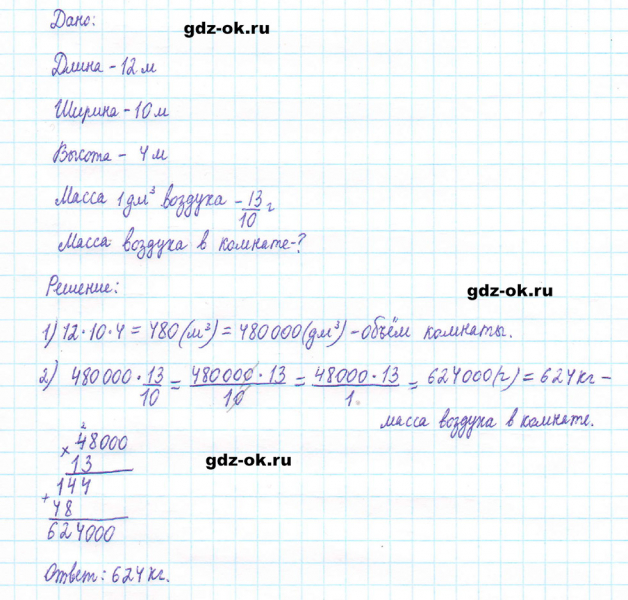 Дано:
gdz-ok.ru
Длина - 12 м
Ширина - 10 м
Высота - 4 м
Масса 1 дм³ воздуха - 13/10 г
Масса воздуха в комнате - ?
Решение:
gdz-ok.ru
1) 12 · 10 · 4 = 480 (м³) = 480000 (дм³) - объём комнаты.
2) 480000 · 13/10 = 480000 · 13/10 = 48000 · 13/1 = 624000 (г) = 624 кг -
масса воздуха в комнате.
2
× 48000
13
gdz-ok.ru
144
+ 48
624000
Ответ: 624 кг.